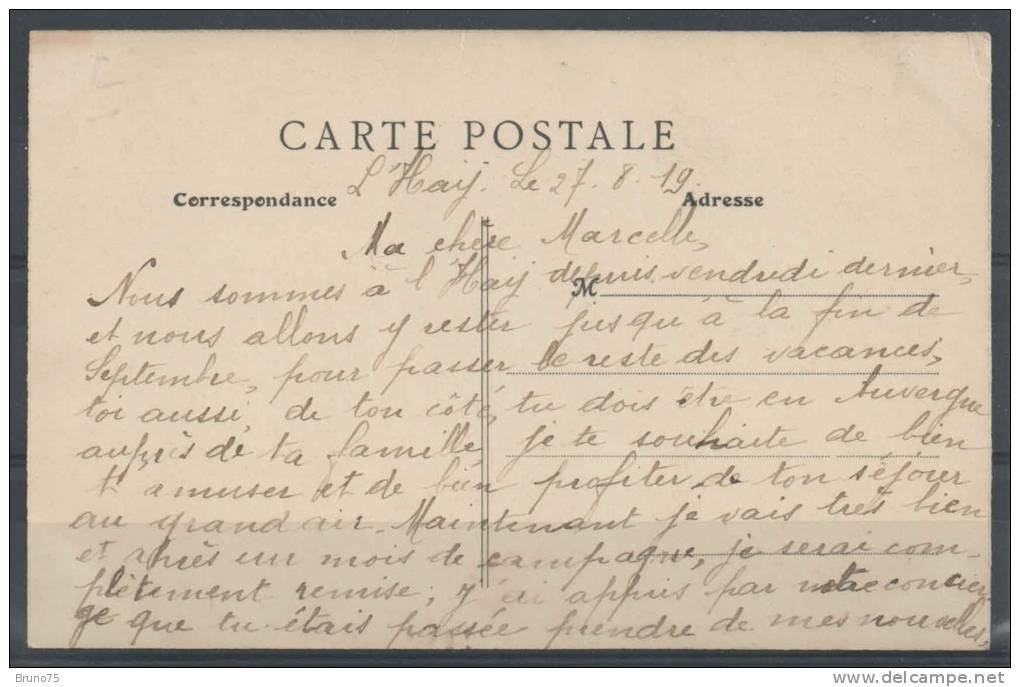 CARTE POSTALE
L'Haÿ. Le 27. 8. 19.
Correspondance
Adresse
Ma chère Marcelle,
Nous sommes à l'Haÿ depuis vendredi dernier,
M
et nous allons y rester jusqu'à la fin de
Septembre, pour passer le reste des vacances,
toi aussi, de ton côté, tu dois être en Auvergne
auprès de ta famille, je te souhaite de bien
t'amuser et de bien profiter de ton séjour
au grand air. Maintenant je vais très bien
et après un mois de campagne, je serai com-
plètement remise, j'ai appris par notre concier
ge que tu étais passée prendre de mes nouvelles,
Bruno75
www.delcampe.net